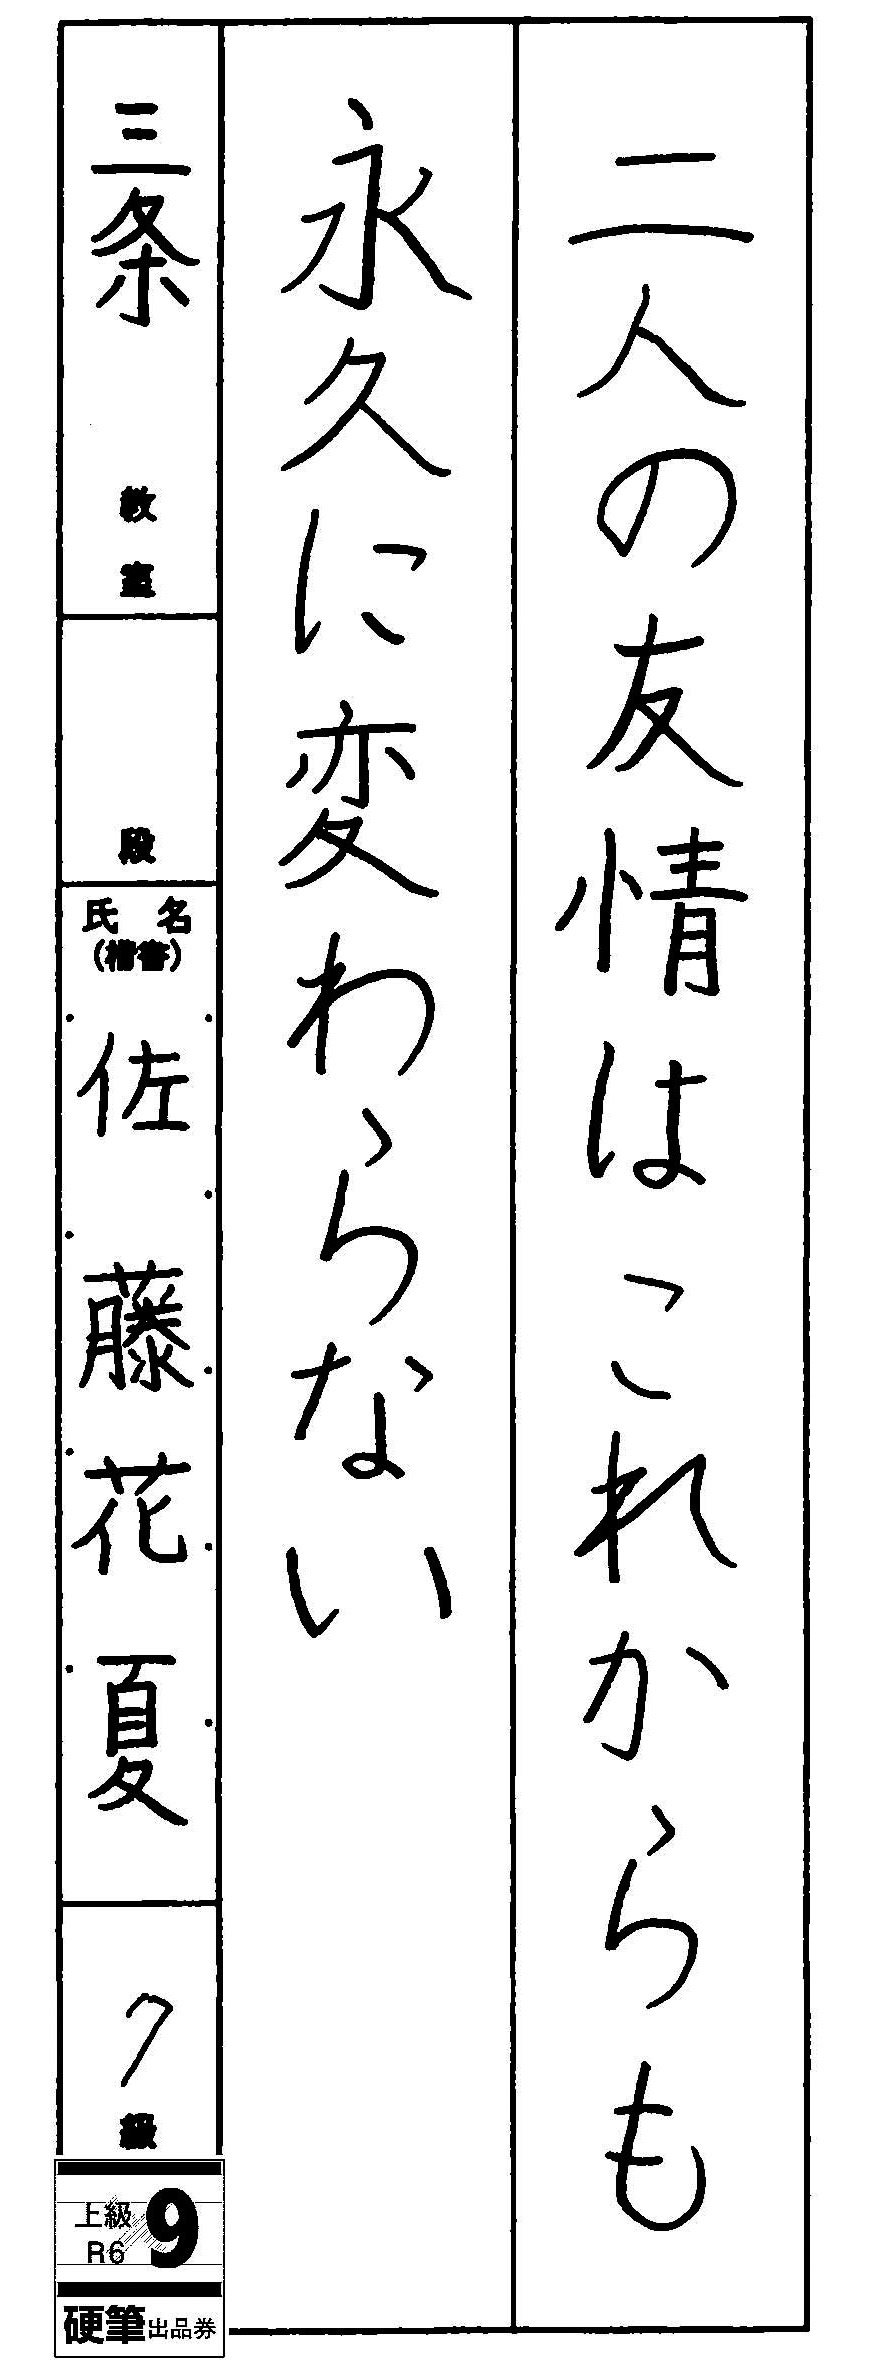 二人の友情はこれからも
永久に変わらない
三条 教室
段
氏名
(楷書)
佐藤花夏
7級
上級 9
R6
硬筆出品券